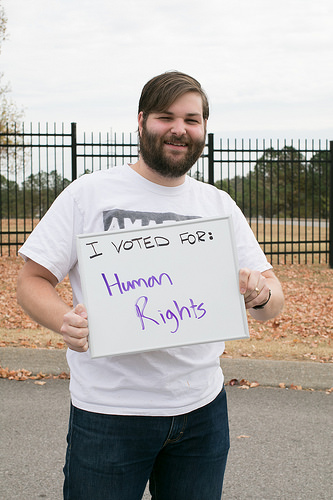 I VOTED FOR:
Human
Rights